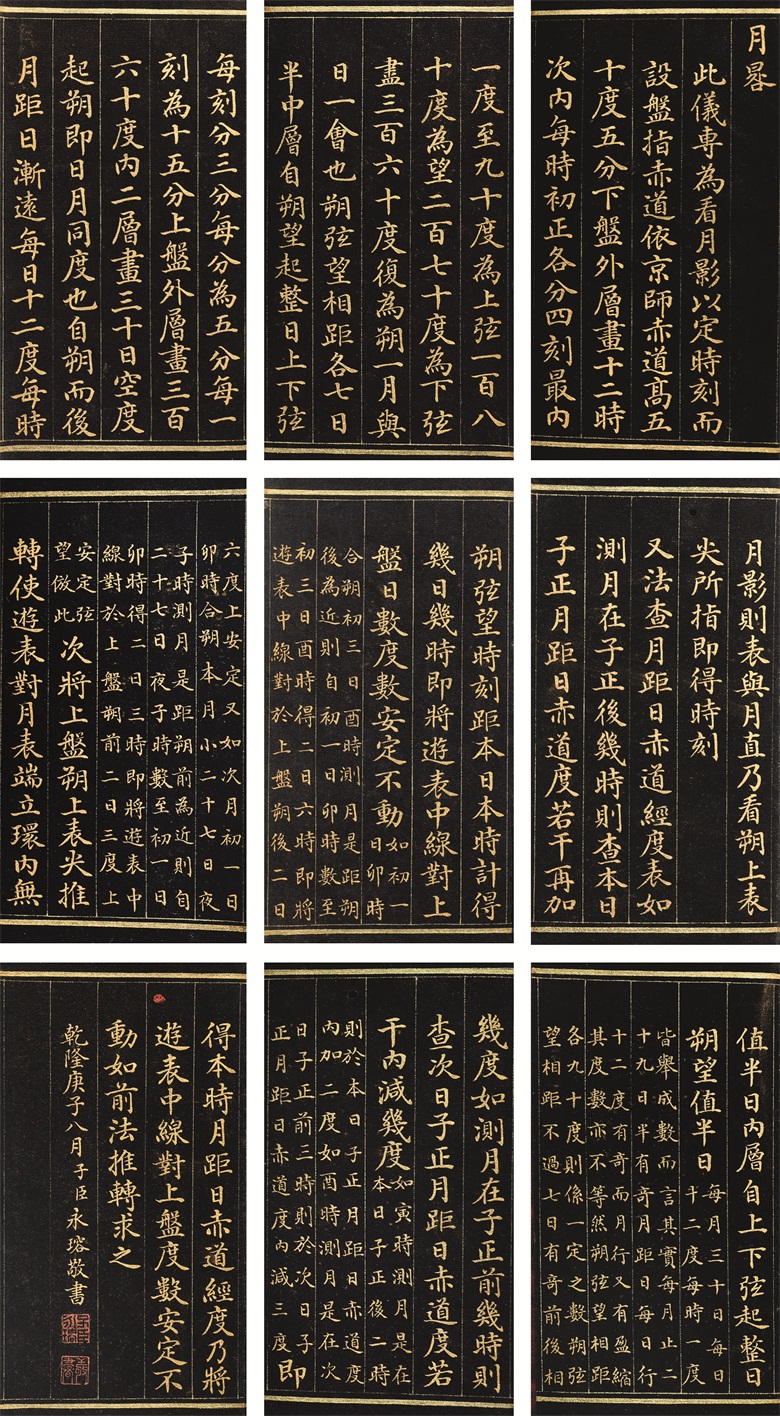 月晷
此儀專為看月影以定時刻而
設盤指赤道依京師赤道高五
十度五分下盤外層畫十二時
次内每時初正各分四刻最内
每刻分三分每分為五分每一
刻為十五分上盤外層畫三百
六十度内二層畫三十日空度
起朔即日月同度也自朔而後
月距日漸遠每日十二度每時
一度至九十度為上弦一百八
十度為望二百七十度為下弦
盡三百六十度復為朔一月與
日一會也朔弦望相距各七日
半中層自朔望起整日上下弦
值半日内層自上下弦起整日
朔望值半日
每月三十日每日
十二度每時一度
皆舉成數而言其實每月止二
十九日半有奇月距日每日行
十二度有奇而月行又有盈縮
其度數亦不等然朔弦望相距
各九十度則係一定之數朔弦
望相距不過七日有奇前後相
朔弦望時刻距本日本時計得
幾日幾時即將遊表中線對上
盤日數度數安定不動
如初一
日卯時
合朔初三日酉時測月是距朔
後為近則自初一日卯時數至
初三日酉時得二日六時即將
遊表中線對於上盤朔後二日
六度上安定又如次月初一日
卯時合朔本月小二十七日夜
子時測月是距朔前為近則自
二十七日夜子時數至初一日
卯時得二日三時即將遊表中
線對於上盤朔前二日三度上
安定弦
望倣此
次將上盤朔上表尖推
轉使遊表對月表端立環内無
月影則表與月直乃看朔上表
尖所指即得時刻
又法查月距日赤道經度表如
測月在子正後幾時則查本日
子正月距日赤道度若干再加
幾度如測月在子正前幾時則
查次日子正月距日赤道度若
干内減幾度
如寅時測月是在
本日子正後二時
則於本日子正月距日赤道度
内加二度如酉時測月是在次
日子正前三時則於次日子
正月距日赤道度内減三度
即
得本時月距日赤道經度乃將
遊表中線對上盤度數安定不
動如前法推轉求之
乾隆庚子八月子臣永瑢敬書